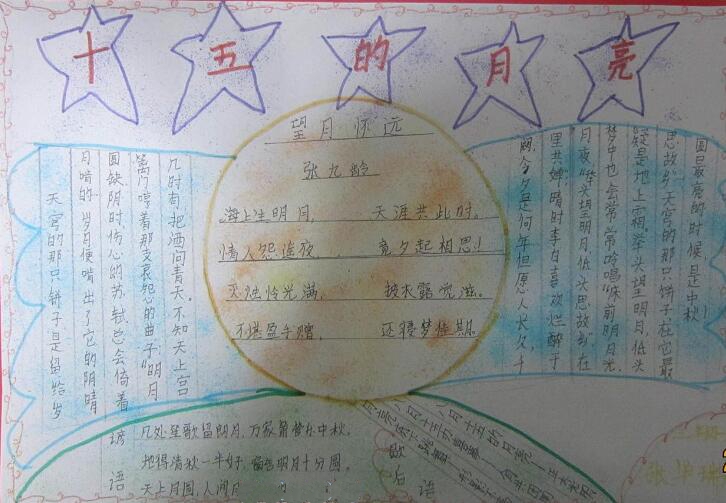 十五的月亮
望月怀远
张九龄
海上生明月，天涯共此时。
情人怨遥夜，竟夕起相思！
灭烛怜光满，披衣露觉滋。
不堪盈手赠，还寝梦佳期。
天宫的那只饼子是留给岁
月啃的岁月便嘴出了它的阴晴
圆缺阴时伤心的苏轼总会倚着
篱门哼着那支哀怨的曲子"明月
几时有，把酒问青天。不知天上宫
阙，今夕是何年但愿人长久，千
里共婵"晴时李白喜欢烂醉于
月夜"举头望明月，低头思故乡"在
梦中也会常常吟唱"床前明月光
疑是地上霜。举头望明月，低头
思故乡"天宫的那只饼子在它最
圆最亮的时候是中秋！
谚语
几处笙歌留朗月，万家箫管乐中秋。
地得清秋一半好，窗含明月十分圆。
天上月圆，人间月
歇后语
八月十五
二班
张华